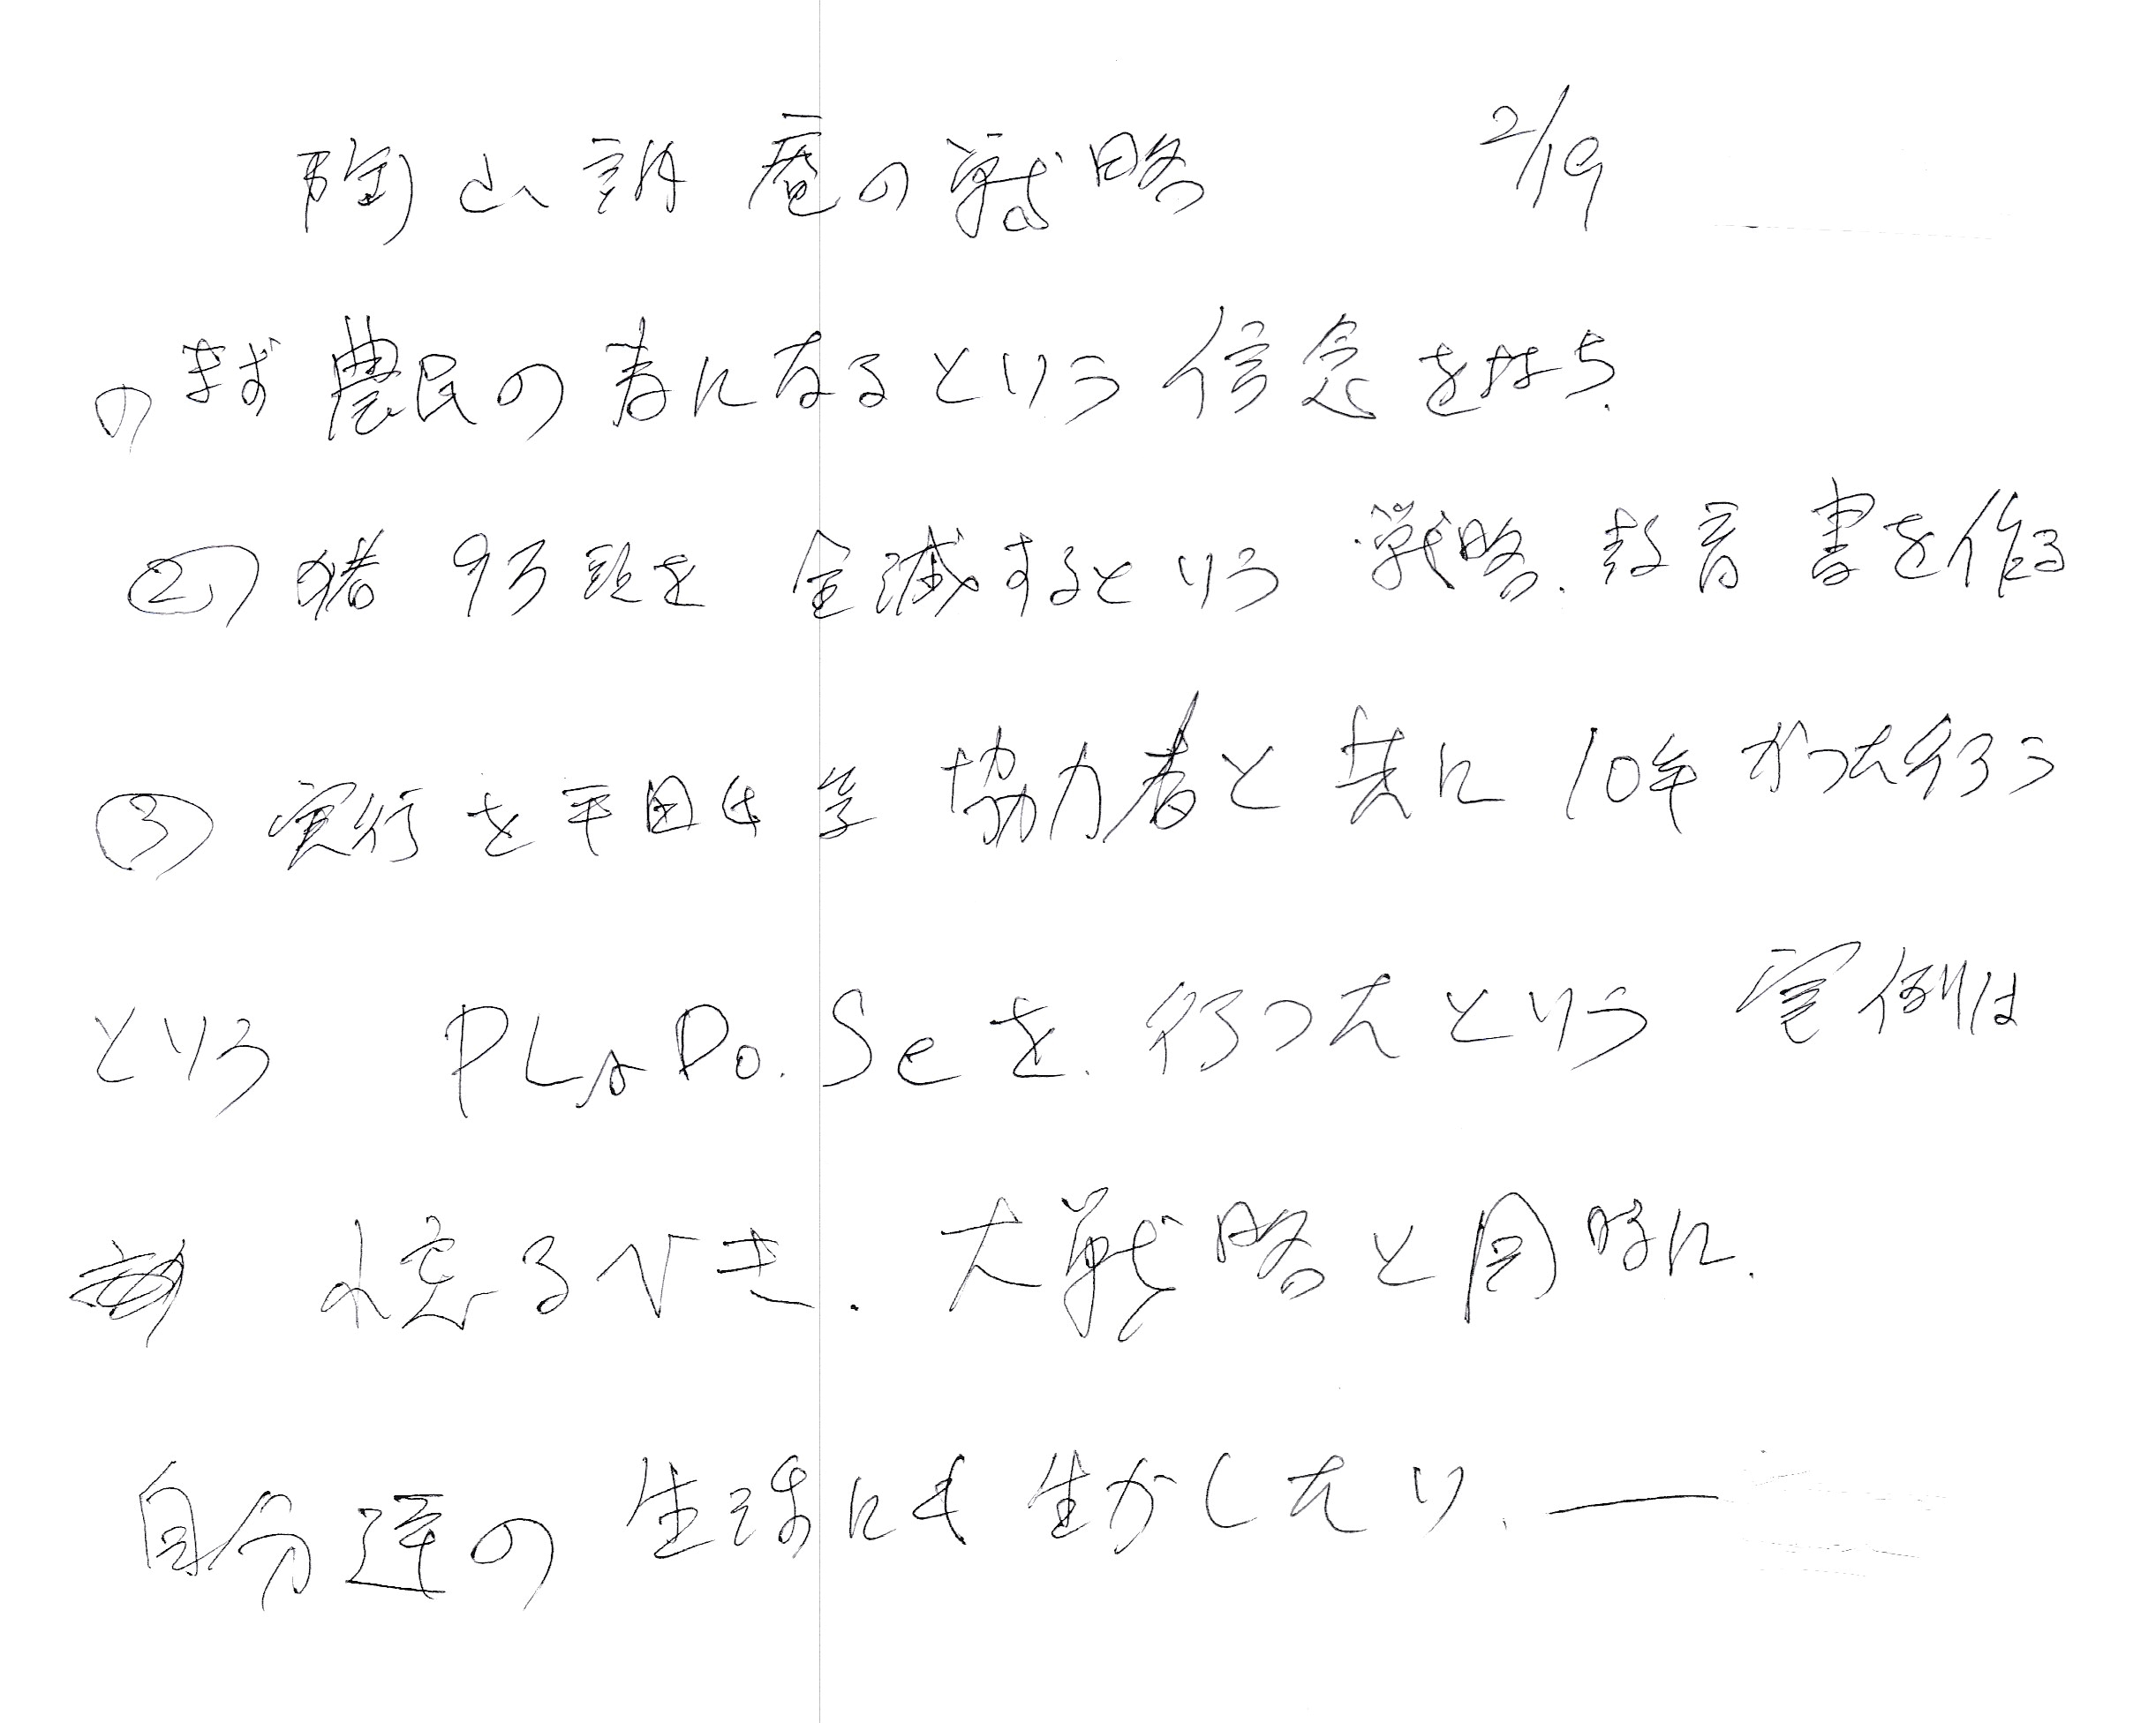 陶山訥庵の戦略 2/19
① まず農民の為になるという信念を持ち、
② 猪 9万頭を 全滅するという 戦略、教育書を作る
③ 実行を平田 協力者と共に 10年かつて行う
という PLn Do. Se を、行ったという 実例は
恐るべき、大戦略と同時に、
自分達の 生活にも生かしたい、―